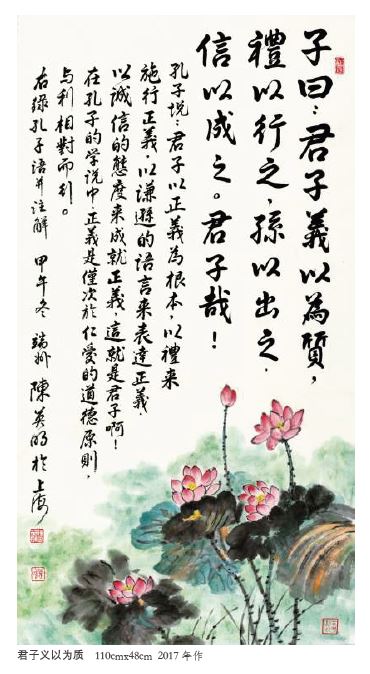 子曰：君子義以為質，
禮以行之，孫以出之，
信以成之。君子哉！
孔子説：君子以正義為根本，以禮来
施行正義，以謙遜的語言来表達正義
以誠信的態度来成就正義，這就是君子啊！
在孔子的学说中正義是僅次於仁愛的道德原則，
与利相對而列。
右錄孔子语并注解 甲午冬 端州 陳英明於上海
君子义以为质 110cmx48cm 2017年作